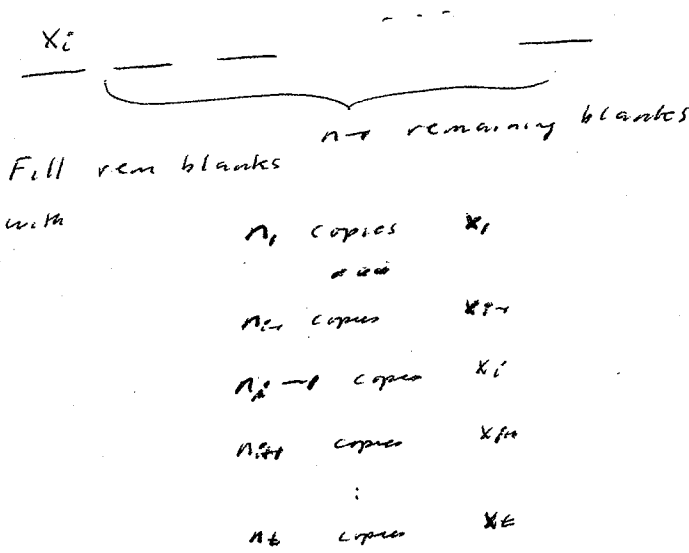 xᵢ
___ ___ ___ - - - ___
n-1 remaining blanks
Fill rem blanks
with
n₁ copies x₁
...
nᵢ₋₁ copies xᵢ₋₁
nᵢ-1 copies xᵢ
nᵢ₊₁ copies xᵢ₊₁
:
nₜ copies xₜ